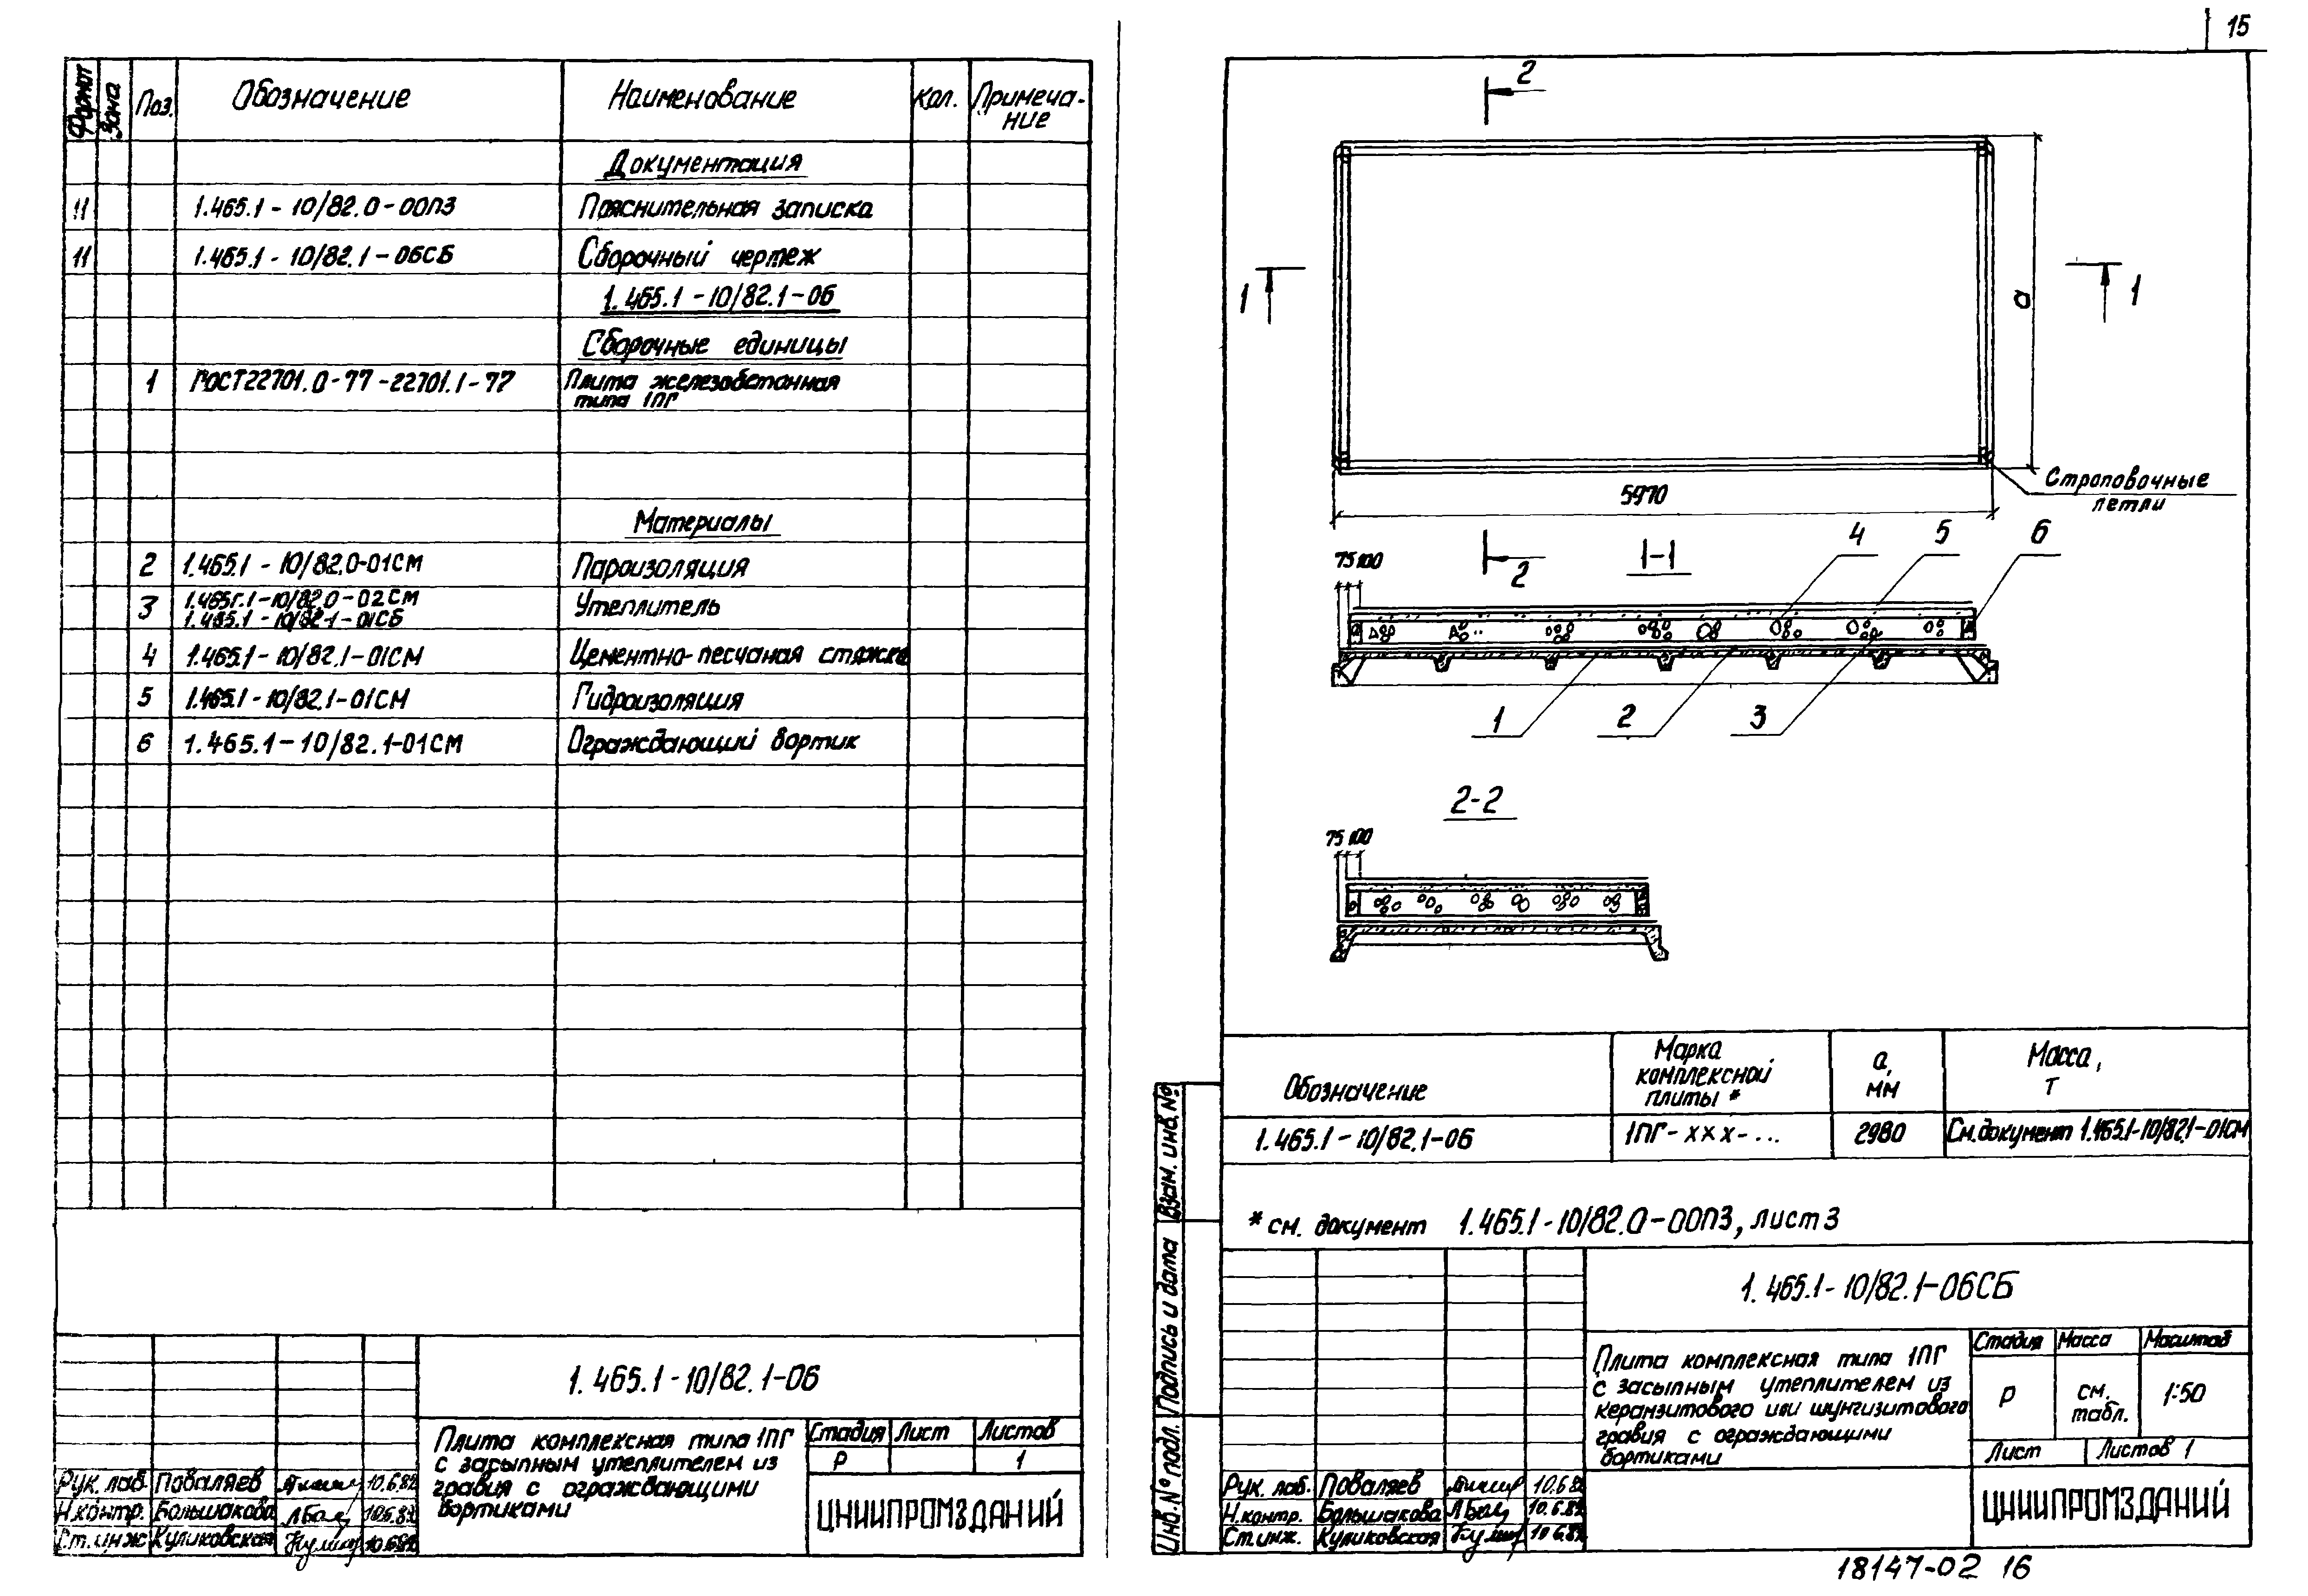 Формат
Зона
Поз.
Обозначение
Наименование
Кол.
Примеча-
ние
Документация
11 1.465.1-10/82.0-00ПЗ Пояснительная записка
11 1.465.1-10/82.1-06СБ Сборочный чертеж
1.465.1-10/82.1-06
Сборочные единицы
1 ГОСТ22701.0-77-22701.1-77 Плита железобетонная
типа 1ПГ
Материалы
2 1.465.1-10/82.0-01СМ Пароизоляция
3 1.465г.1-10/82.0-02СМ Утеплитель
1.465.1-10/82-1-01СБ
4 1.465.1-10/82.1-01СМ Цементно-песчаная стяжка
5 1.465.1-10/82.1-01СМ Гидроизоляция
6 1.465.1-10/82.1-01СМ Ограждающий бортик
1.465.1-10/82.1-06
Плита комплексная типа 1ПГ
с засыпным утеплителем из
гравия с ограждающими
бортиками
Стадия Лист Листов
Р 1
ЦНИИПРОМЗДАНИЙ
Рук. лаб. Поваляев 10.6.82
Н.контр. Большакова 10.6.82
Ст.инж Куликовская 10.6.82
15
2
1
а
1
Строповочные
петли
5970
2
1-1
75 100
4 5 6
1 2 3
2-2
75 100
Обозначение
Марка
комплексной
плиты *
а,
мм
Масса,
т
1.465.1-10/82.1-06 1ПГ-ххх-... 2980 См.документ 1.465.1-10/82.1-01СМ
* см. документ 1.465.1-10/82.0-00ПЗ, лист 3
Взам. инв. №
Подпись и дата
Инв.№ подл.
1.465.1-10/82.1-06СБ
Плита комплексная типа 1ПГ
с засыпным утеплителем из
керамзитового или шунгизитового
гравия с ограждающими
бортиками
Стадия Масса Масштаб
Р см.
табл. 1:50
Лист Листов 1
ЦНИИПРОМЗДАНИЙ
Рук. лаб. Поваляев 10.6.82
Н.контр. Большакова 10.6.82
Ст.инж. Куликовская 10.6.82
18147-02 16